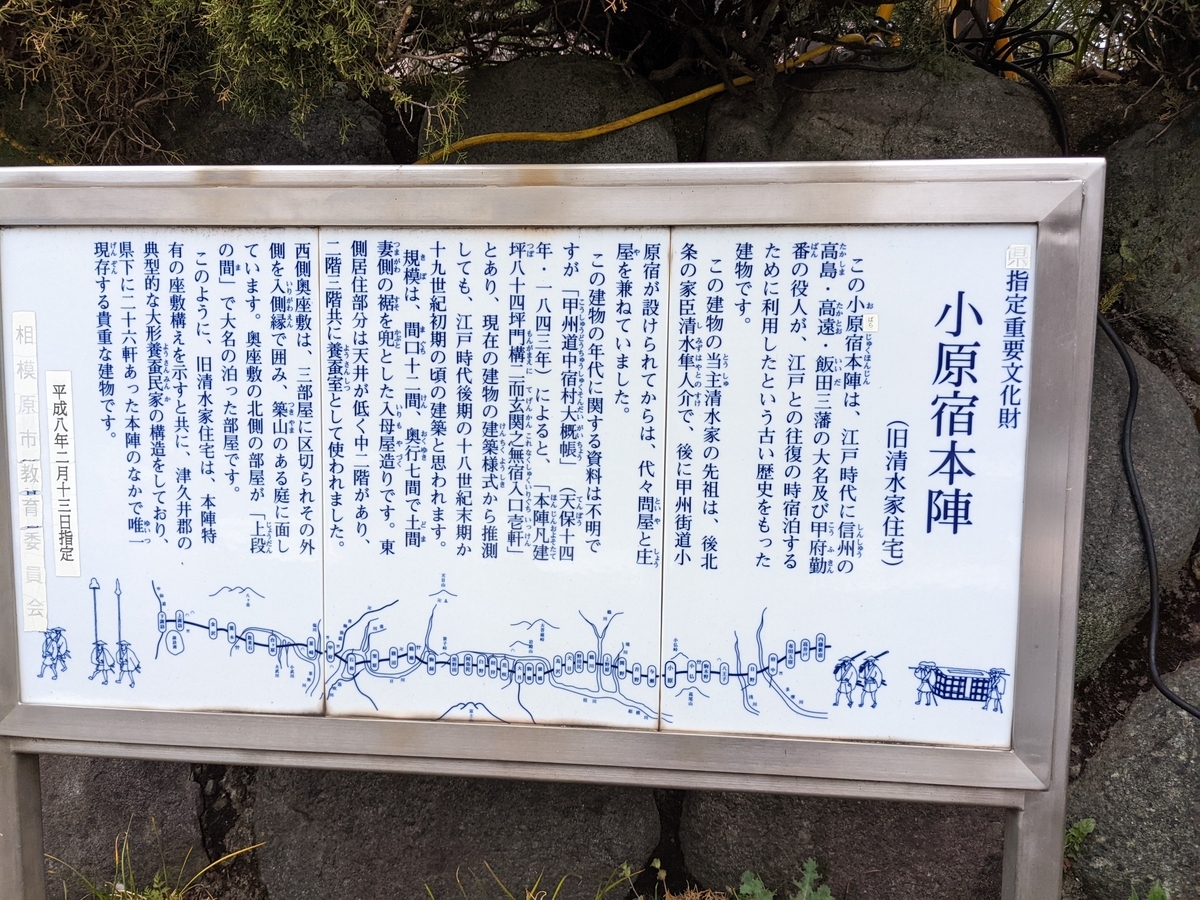 県指定重要文化財
小原宿本陣
（旧清水家住宅）
この小原宿本陣は、江戸時代に信州の
高島・高遠・飯田三藩の大名及び甲府勤
番の役人が、江戸との往復の時宿泊する
ために利用したという古い歴史をもった
建物です。
この建物の当主清水家の先祖は、後北
条の家臣清水隼人介で、後に甲州街道小
原宿が設けられてからは、代々問屋と庄
屋を兼ねていました。
この建物の年代に関する資料は不明で
すが「甲州道中宿村大概帳」（天保十四
年・一八四三年）によると、「本陣凡建
坪八十四坪門構ニ而玄関之無宿入口壱軒」
とあり、現在の建物の建築様式から推測
しても、江戸時代後期の十八世紀末期か
十九世紀初期の頃の建築と思われます。
規模は、間口十二間、奥行七間で土間
妻側の裾を兜とした入母屋造りです。東
側居住部分は天井が低く中二階があり、
二階三階共に養蚕室として使われました。
西側奥座敷は、三部屋に区切られその外
側を入側縁で囲み、築山のある庭に面し
ています。奥座敷の北側の部屋が「上段
の間」で大名の泊った部屋です。
このように、旧清水家住宅は、本陣特
有の座敷構えを示すと共に、津久井郡の
典型的な大形養蚕民家の構造をしており、
県下に二十六軒あった本陣のなかで唯一
現存する貴重な建物です。
平成八年二月十三日指定
相模原市教育委員会